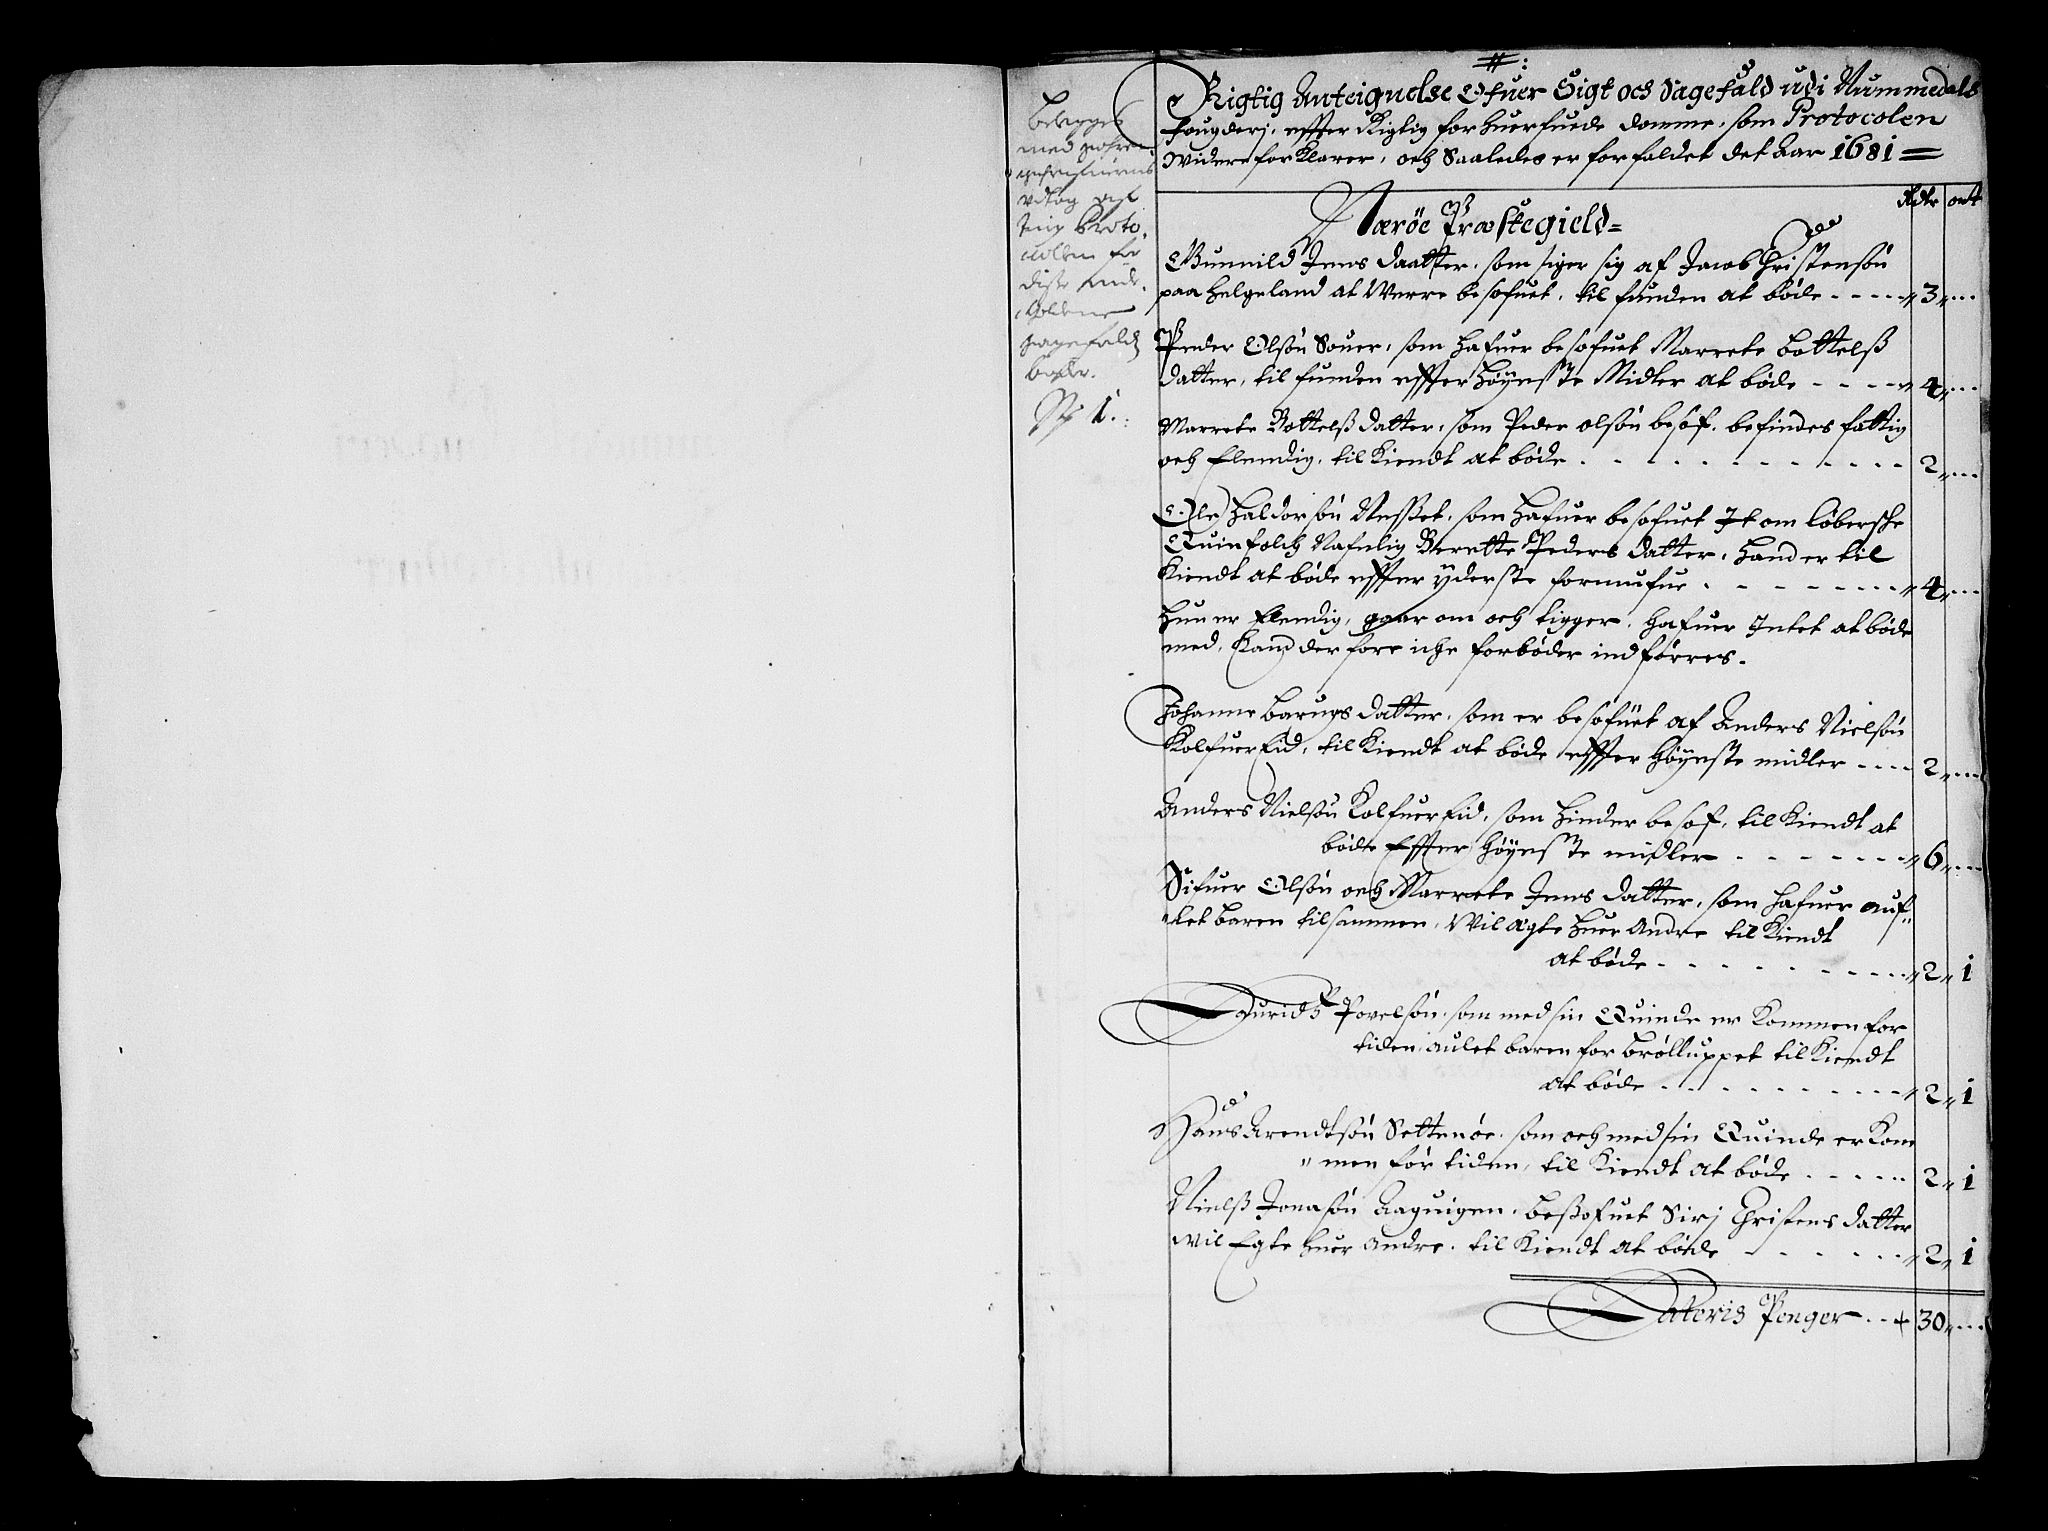 Rigtig Anteignelse Ofuer Sigt och Sagefald udi Nummedals
fougderj, effter Rigtig forhuerfuede domme, som Protocolen
Widere forklarer, och Saaledes er forfaldet det Aar 1681
Rdr ort
Nærøe Præstegield
Gunnild Jens daatter, som siger sig af Jacob Christensøn
paa Helgeland at Werre besofuet, til funden at bøde 3
Peder Olsøn Souer, som hafuer besofuet Marrete bottelß
datter, til funden effter höyeste Midler at bøde 4
Marrete Bottelß datter, som Peder olsøn besof. befindes fattig
och Elendig, til Kiendt at bøde 2
Ole Haldorsøn Nesset, som hafuer besofuet It om løbersche
Quinfolch Nafnlig Berette Peders datter, hand er til
Kiendt at bøde effter yderste formufue 4
Hun er Elendig, gaar om och tigger, hafuer Intet at bøde
med, Kand derfore iche for bøder indførres.
Johanne Barups datter, som er besofüet af Anders Nielsøn
Kolfuer Eid, til Kiendt at bøde effter höyeste midler 2
Anders Nielsøn Kolfuer Eid, som hinder besof, til Kiendt at
bøde Effter höyeste midler 6
Sifuer Olsøn och Marrete Jens datter, som hafuer auf-
let baren tilsammen, Wil ægte huer Andre til Kiendt
at bøde 2 1
Lauridtz Povelsøn, som med sin Quinde er Kommen for
tiden, aulet baren for brølluppet til Kiendt
at bøde 2 1
Hans Arendtsøn Settenøe, som och med sin Quinde er Kom
men før tiden, til Kiendt at bøde 2 1
Nielß Jonasøn Aaguigen, beßofuet Sirj Christens datter
wil Egte huer andre, til Kiendt at bøde 2 1
Lateris Penger 30
Belegges
med
vdtog af
ting Proto-
collen for
diße inde-
holdene
Sagefalds
bøder.
N 1.